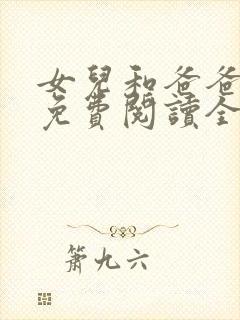 女兒和爸爸
免費閱讀全
簫九六